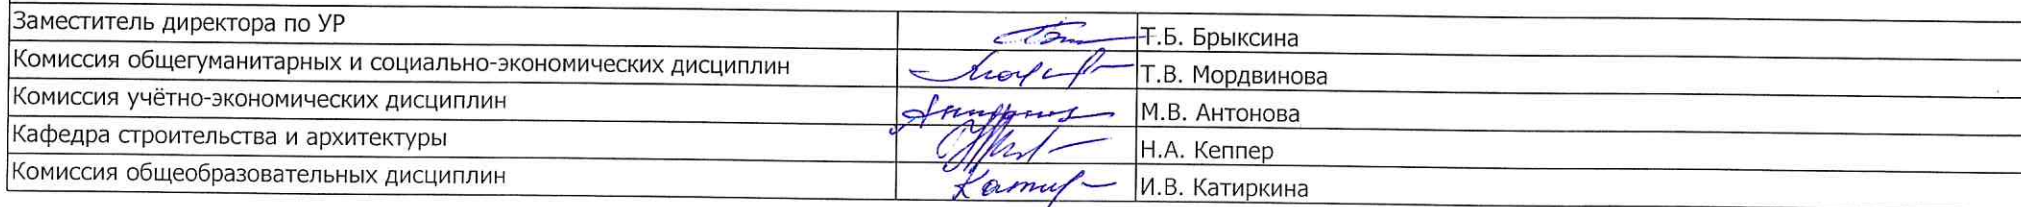 Заместитель директора по УР Т.Б. Брыксина
Комиссия общегуманитарных и социально-экономических дисциплин Т.В. Мордвинова
Комиссия учётно-экономических дисциплин М.В. Антонова
Кафедра строительства и архитектуры Н.А. Кеппер
Комиссия общеобразовательных дисциплин И.В. Катиркина